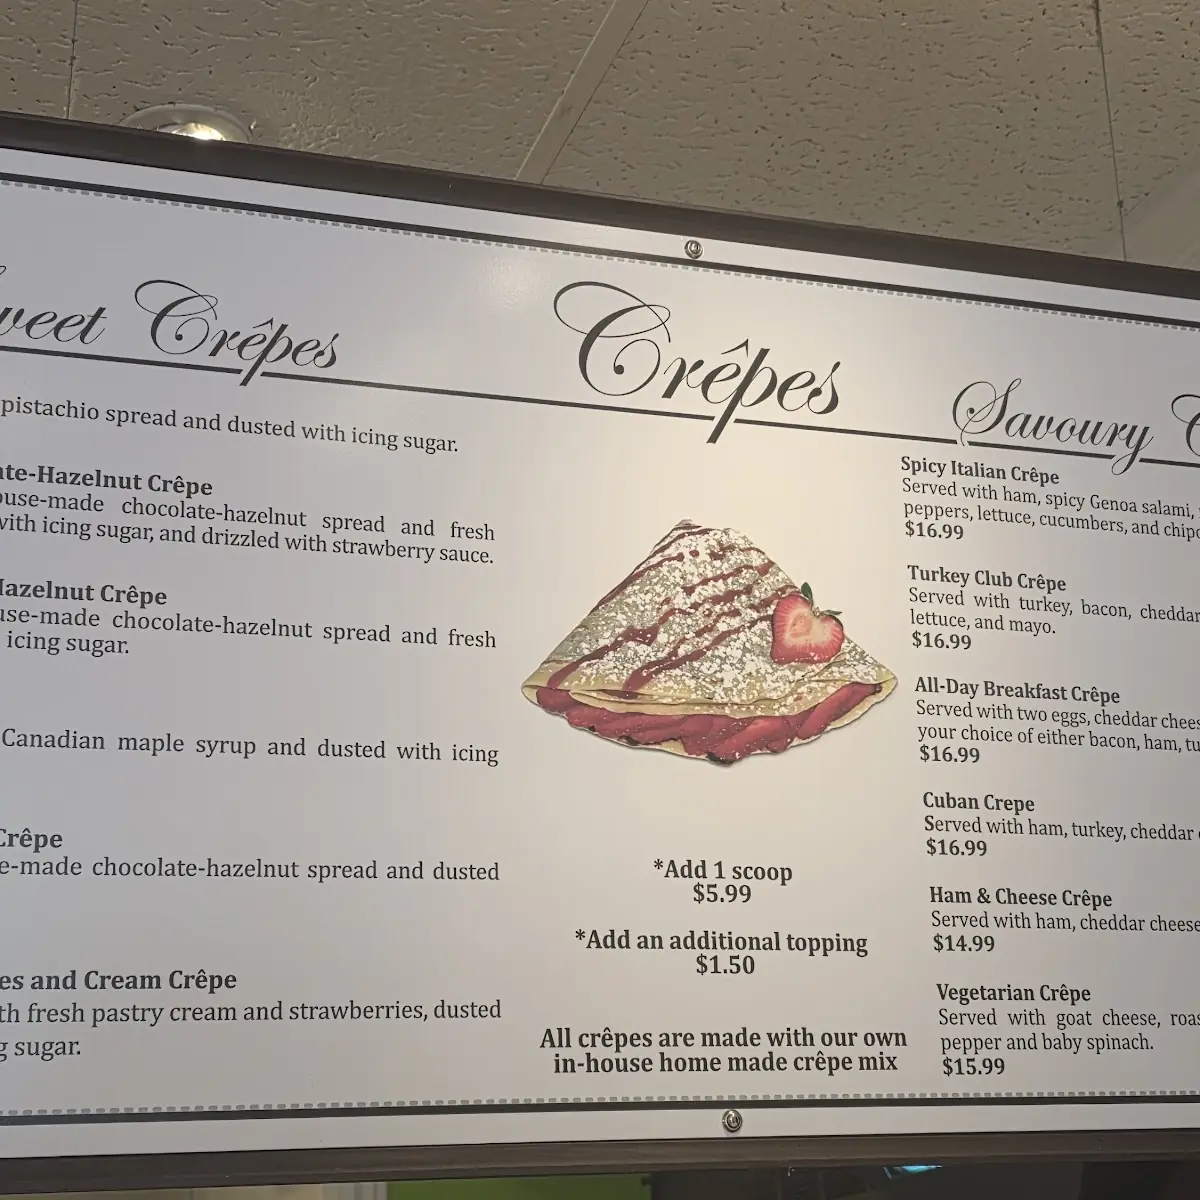 Crêpes
pistachio spread and dusted with icing sugar.
Hazelnut Crêpe
chocolate-hazelnut spread and fresh
with icing sugar, and drizzled with strawberry sauce.
Hazelnut Crêpe
chocolate-hazelnut spread and fresh
icing sugar.
Canadian maple syrup and dusted with icing
Crêpe
chocolate-hazelnut spread and dusted
and Cream Crêpe
fresh pastry cream and strawberries, dusted
sugar.
Crêpes
*Add 1 scoop
$5.99
*Add an additional topping
$1.50
All crêpes are made with our own
in-house home made crêpe mix
Savoury
Spicy Italian Crêpe
Served with ham, spicy Genoa salami,
peppers, lettuce, cucumbers, and
$16.99
Turkey Club Crêpe
Served with turkey, bacon, cheddar
lettuce, and mayo.
$16.99
All-Day Breakfast Crêpe
Served with two eggs, cheddar
your choice of either bacon, ham,
$16.99
Cuban Crepe
Served with ham, turkey, cheddar
$16.99
Ham & Cheese Crêpe
Served with ham, cheddar cheese
$14.99
Vegetarian Crêpe
Served with goat cheese,
pepper and baby spinach.
$15.99